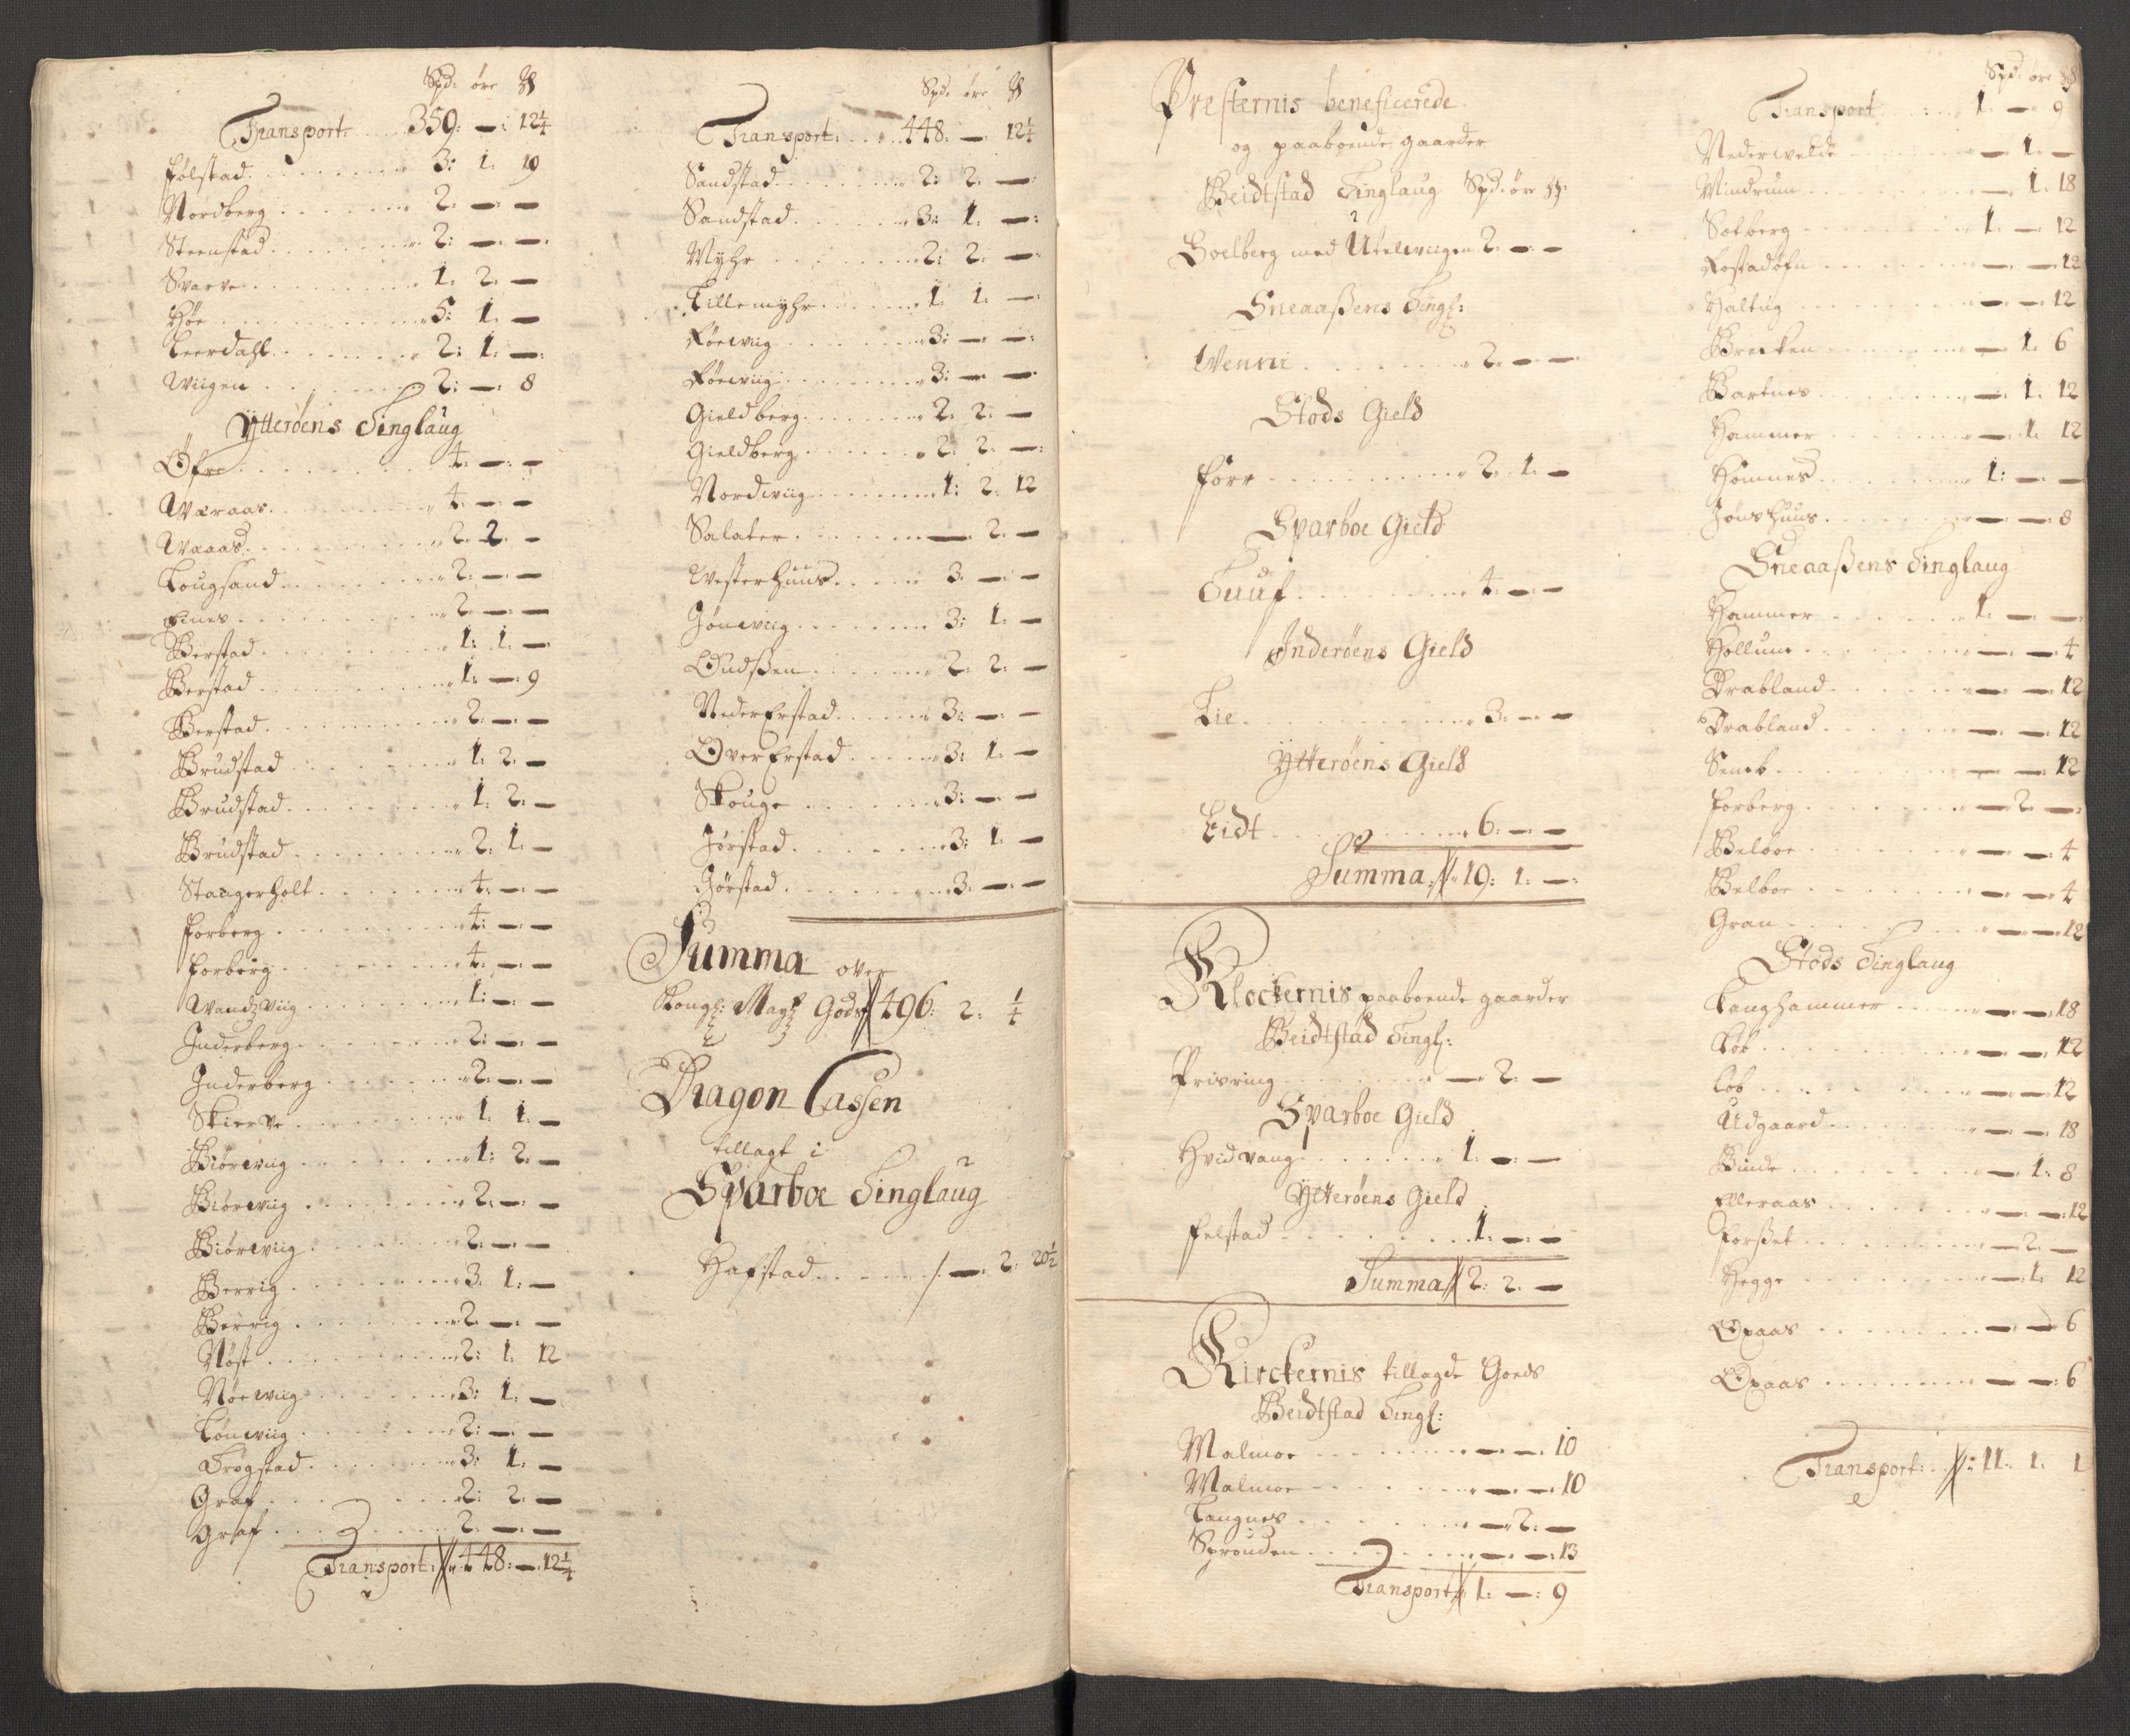 Spd: öre ℔
Transport: 350: — 12 1/4
Følstad 3: 1: 19
Nordberg 2: — —
Steenstad 2: — —
Svarve 1: 2: —
Høe 5: 1: —
Leerdahl 2: 1: —
Wiigen 2: — 8
Ÿtterøens Tinglaug
Öfre 4: — —
Wæraas 4: — —
Waaad 2: 2: —
Tougsand 2: — —
Eines 2: — —
Berstad 1: 1: —
Berstad 1: — 9
Berstad 2: — —
Brudstad 1: 2: —
Brudstad 1: 2: —
Brudstad 2: 1: —
Staagerholt 4: — —
Forberg 4: — —
Forberg 4: — —
Wandzviig 1: — —
Inderberg 2: — —
Inderberg 2: — —
Skierve 1: 1: —
Biörwiig 1: 2: —
Biörwiig 2: — —
Biörwiig 2: — —
Berrig 3: 1: —
Berrig 2: — —
Nøst 2: 1: 12
Nøewiig 3: 1: —
Lönwiig 2: — —
Trøgstad 3: 1: —
Graf 2: 2: —
Graf 2: — —
Transport: 448: — 12 1/4
Spd: öre ℔
Transport: 448: — 12 1/4
Sandstad 2: 2: —
Sandstad 3: 1: —
Myhr 2: 2: —
Lillemyhr 1: 1: —
Röewiig 3: — —
Röewiig 3: — —
Gieldberg 2: 2: —
Gieldberg 2: 2: —
Nordwiig 1: 2: 12
Salater — 2: —
Westerhuus 3: — —
Jönwiig 3: 1: —
Oudßen 2: 2: —
Neder Erstad 3: — —
Over Erstad 3: 1: —
Skouge 3: — —
Jörstad 3: 1: —
Jörstad 3: — —
Summa over
Kongl: Mayt Gods 496: 2: 1/4
Dragon Cassen
tillagt i
Sparboe Tinglaug
Hafstad — 2: 20 1/2
Presternis beneficerede
og paaboende gaarder
Beidtstad Tinglaug Spd: ör ℔:
Soelberg med Utelwiigen 2: — —
Sneaaßens Tingl:
Wenni 2: — —
Stods Gield
Forr 2: 1: —
Sparboe Gield
Tuuf 4: — —
Inderöens Gield
Lie 3: — —
Ÿtterøens Gield
Eidt 6: — —
Summa 19: 1: —
Klockernis paaboende gaarder
Beidtstad Tingl:
Prisring — 2: —
Sparboe Gield
Hvidvang 1: — —
Ÿtterøens Gield
Felstad 1: — —
Summa 2: 2: —
Kirckernis tillagde Goeds
Beidtstad Tingl:
Malmoe — — 10
Malmoe — — 10
Langnes — 2: —
Sprouden — — 13
Transport 1: — 9
Spd: öre ℔
Transport 1: — 9
Nederwelde — 1: —
Windrum — 1: 18
Solberg 1: — 12
Rostadøfn — — 12
Haltug — — 12
Brecken — 1: 6
Bartnes — 1: 12
Hammer — 1: 12
Homnes 1: — —
Jönshuus — — 8
Sneaaßens Tinglaug
Hammer 1: — —
Hollum — — 4
Drabland — — 12
Drabland — — 12
Semb — — 12
Forberg — 2: —
Belboe — — 4
Belboe — — 4
Gran — — 12
Stods Tinglaug
Langhammer — — 18
Löb — — 12
Löb — — 12
Udgaard — — 18
Binde — 1: 8
Elleraas — — 12
Forßet — 2: —
Hegge — 1: 12
Opaas — — 6
Opaas — — 6
Transport: 11: 1: 1